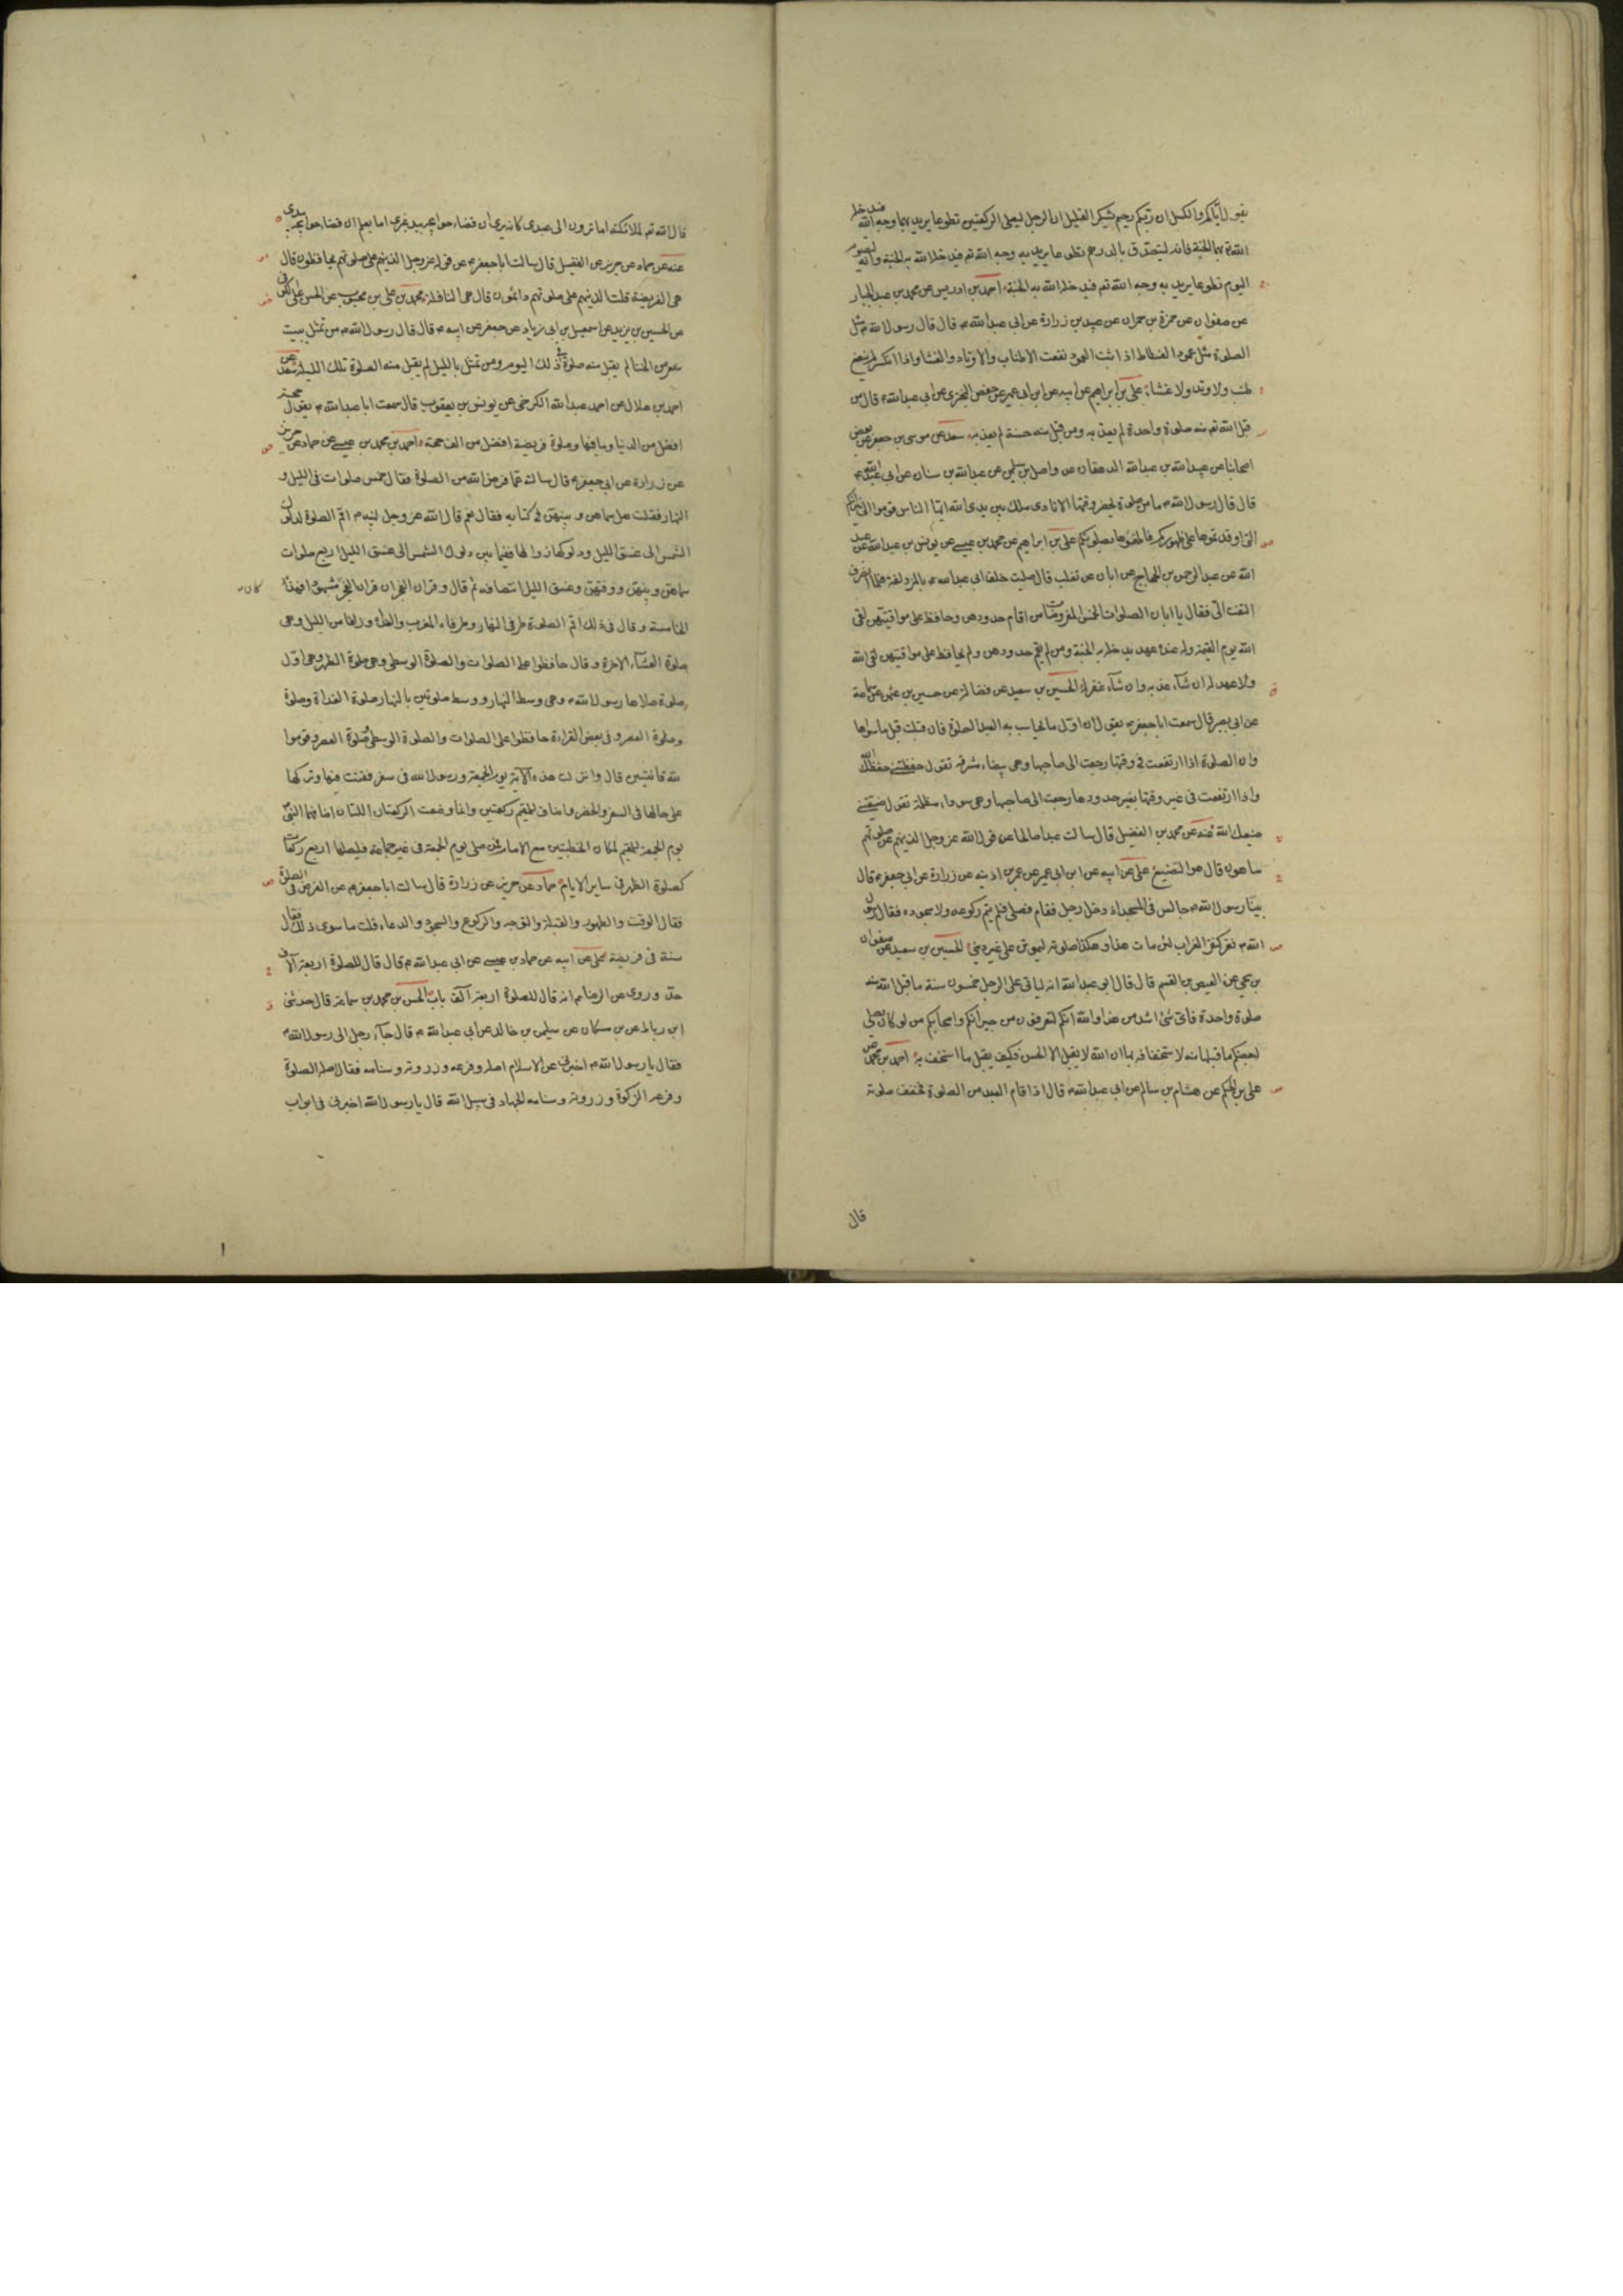 يقول اياكم والكسل ان ربكم رحيم يشكر القليل ان الرجل ليصلى الركعتين تطوعا يريد بهما وجه الله فيدخله
الله تم بهما الجنة وانه ليتصدق بالدرهم تطوعا يريد به وجه الله تم فيدخله الله به الجنة وانه ليصوم
اليوم تطوعا يريد به وجه الله تم فيدخله الله به الجنة احمد بن ادريس عن محمد بن عبد الجبار
عن صفوان عن حمزة بن حمران عن عبيد بن زرارة عن ابى عبد الله ع قال قال رسول الله ص مثل
الصلوة مثل عمود الفسطاط اذا ثبت العمود نفعت الاطناب والاوتاد والغشا واذا انكسر لم ينفع
طنب ولا وتد ولا غشاء على بن ابراهيم عن ابيه عن ابن ابى عمير عن حفص البخترى عن ابى عبد الله ع قال من
قبل الله تم منه صلوة واحدة لم يعذبه ومن قبل منه حسنة لم يعذبه سعد عن موسى بن جعفر عن بعض
اصحابنا عن عبيد الله بن عبد الله الدهقان عن واصل بن سليمن عن عبد الله بن سنان عن ابى عبد الله ع
قال قال رسول الله ص ما من صلوة يحضر وقتها الا نادى ملك بين يدى الله ايها الناس قوموا الى نيرانكم
التى اوقدتموها على ظهوركم فاطفئوها بصلوتكم على بن ابراهيم عن محمد بن عيسى عن يونس بن عبد الله عن عبد
الله عن عبد الرحمن بن الحجاج عن ابان بن تغلب قال صليت خلف ابى عبد الله ع بالمزدلفة فلما انصرف
التفت الى فقال يا ابان الصلوات الخمس المفروضات من اقام حدودهن وحافظ على مواقيتهن لقى
الله يوم القيمة وله عنده عهد يدخله به الجنة ومن لم يقم حدودهن ولم يحافظ على مواقيتهن لقى الله
ولا عهد له ان شاء عذبه وان شاء غفر له الحسين بن سعيد عن فضالة عن حسين بن عثمن عن سماعة
عن ابى بصير قال سمعت ابا جعفر ع يقول ان اول ما يحاسب به العبد الصلوة فان قبلت قبل ما سواها
وان الصلوة اذا ارتفعت فى وقتها رجعت الى صاحبها وهى بيضاء مشرقة تقول حفظتنى حفظك الله
واذا ارتفعت فى غير وقتها بغير حدودها رجعت الى صاحبها وهى سوداء مظلمة تقول ضيعتنى
ضيعك الله عنه عن محمد بن الفضيل قال سالت عبدا صالحا عن قول الله عز وجل الذينهم عن صلوتهم
ساهون قال هو التضييع على عن ابيه عن ابن ابى عمير عن عمر بن اذينه عن زرارة عن ابى جعفر ع قال
بينا رسول الله ص جالس فى المسجد اذ دخل رجل فقام فصلى فلم يتم ركوعه ولا سجوده فقال رسول
الله ص نقر كنقر الغراب لئن مات هذا وهكذا صلوته ليموتن على غير دينى الحسين بن سعيد عن صفوان
بن يحيى عن العيص بن القسم قال قال ابو عبد الله انه لياتى على الرجل خمسون سنة ما قبل الله منه
صلوة واحدة فاى شئ اشد من هذا والله انكم لتعرفون من جيرانكم واصحابكم من لو كان يصلى
لبعضكم ما قبلها منه لاستخفافه بها ان الله لا يقبل الا الحسن فكيف يقبل ما استخف به احمد بن محمد عن
على بن الحكم عن هشام بن سالم عن ابى عبد الله ع قال اذا قام العبد من الصلوة فخفف صلوته
قال
قال الله تم لملائكته اما ترون الى عبدى كانه يرى ان قضاء حوايجه بيد غيرى اما يعلم ان قضاء حوايجه بيدى
عنه عن حماد عن حريز عن الفضيل قال سالت ابا جعفر ع عن قوله عز وجل الذينهم على صلوتهم يحافظون قال
هى الفريضة قلت الذينهم على صلوتهم دائمون قال هى النافلة محمد بن على بن محبوب عن الحسن بن على الكوفى
عن الحسين بن يزيد عن اسمعيل بن ابى زياد عن جعفر عن ابيه ع قال قال رسول الله ص من تمثل ببيت
شعر من الخنا لم يقبل منه صلوة فى ذلك اليوم ومن تمثل بالليل لم يقبل منه الصلوة تلك الليلة سعد عن
احمد بن هلال عن احمد بن عبد الله الكرخى عن يونس بن يعقوب قال سمعت ابا عبد الله ع يقول حجة
افضل من الدنيا وما فيها وصلوة فريضة افضل من الف حجة احمد بن محمد بن عيسى عن حماد عن حريز
عن زرارة عن ابى جعفر ع قال سالته عما فرض الله من الصلوة فقال خمس صلوات فى الليل و
النهار فقلت هل سماهن وبينهن فى كتابه فقال نعم قال الله عز وجل لنبيه ص اقم الصلوة لدلوك
الشمس الى غسق الليل ودلوكها زوالها ففيما بين دلوك الشمس الى غسق الليل اربع صلوات
سماهن وبينهن ووقتهن وغسق الليل انتصافه ثم قال وقران الفجر ان قران الفجر كان مشهودا فهذه
الخامسة وقال فى ذلك اقم الصلوة طرفى النهار وطرفاه المغرب والغداة وزلفا من الليل وهى
صلوة العشاء الاخرة وقال حافظوا على الصلوات والصلوة الوسطى وهى صلوة الظهر وهى اول
صلوة صلاها رسول الله ص وهى وسط النهار ووسط صلوتين بالنهار صلوة الغداة وصلوة
وصلوة العصر وفى بعض القراءة حافظوا على الصلوات والصلوة الوسطى صلوة العصر وقوموا
لله قانتين قال وانزلت هذه الآية يوم الجمعة ورسول الله فى سفر فقنت فيها وتركها
على حالها فى السفر والحضر واضاف للمقيم ركعتين وانما وضعت الركعتان اللتان اضافهما النبى
يوم الجمعة للمقيم لمكان الخطبتين مع الامام فمن صلى يوم الجمعة فى غير جماعة فليصلها اربع ركعات
كصلوة الظهر فى ساير الايام حماد عن حريز عن زرارة قال سالت ابا جعفر ع عن الفرض فى الصلوة
فقال الوقت والطهور والقبلة والتوجه والركوع والسجود والدعاء قلت ما سوى ذلك فقال
سنة فى فريضة على عن ابيه عن حماد بن عيسى عن ابى عبد الله ع قال قال للصلوة اربعة آلاف
حد وروى عن الرضا ع انه قال للصلوة اربعة آلف باب الحسن بن محمد بن سماعة قال حدثنى
ابن رباط عن بن مسكان عن سليمن بن خالد عن ابى عبد الله ع قال جاء رجل الى رسول الله ص
فقال يا رسول الله ص اخبرنى عن الاسلام اصله وفرعه وزروته وسنامه فقال اصله الصلوة
وفرعه الزكوة وزروته وسنامه الجهاد فى سبيل الله قال يا رسول الله اخبرنى فى ابواب